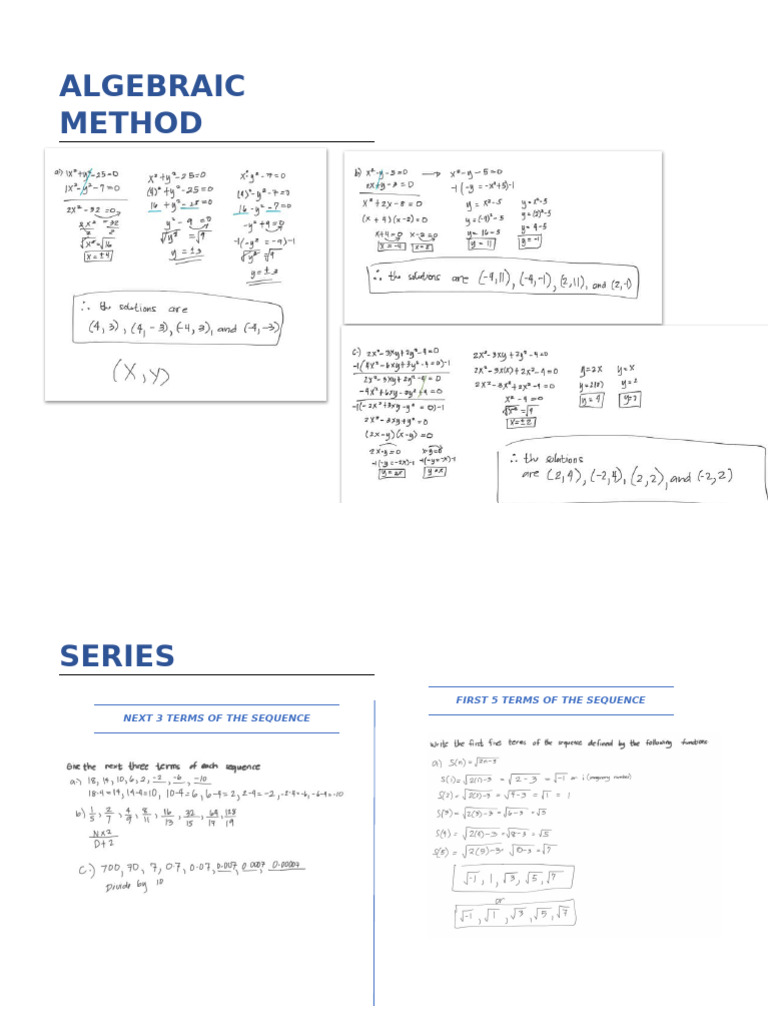 ALGEBRAIC
METHOD
a) x² + y² - 25 = 0
x² - y² - 7 = 0
2x² - 32 = 0
√x² = √16
x = ±4
x² + y² - 25 = 0
(4)² + y² - 25 = 0
16 + y² - 25 = 0
y² - 9 = 0
√y² = √9
y = ±3
(4)² - y² - 7 = 0
16 - y² - 7 = 0
-y² + 9 = 0
-1(-y² = -9)-1
√y² = √9
y = ±3
∴ the solutions are
(4, 3), (4, -3), (-4, 3), and (-4, -3)
(X, Y)
b) x² - y - 5 = 0
2x + y - 3 = 0
x² + 2x - 8 = 0
(x + 4)(x - 2) = 0
x+4=0 x-2=0
x = -4 x = 2
x² - y - 5 = 0
-1(-y = -x² + 5)-1
y = x² - 5
y = (-4)² - 5
y = 16 - 5
y = 11
y = x² - 5
y = (2)² - 5
y = 4 - 5
y = -1
∴ the solutions are (-4, 11), (-4, -1), (2, 11), and (2, -1)
c) 2x² - 3xy + 2y² - 4 = 0
-1(4x² - 6xy + 3y² - 4 = 0)-1
2x² - 3xy + 2y² - 4 = 0
-1(-2x² + 3xy - y² = 0)-1
2x² - 3xy + y² = 0
(2x - y)(x - y) = 0
2x-y=0 x-y=0
-1(-y = -2x)-1 -1(-y = -x)-1
y = 2x y = x
2x² - 3xy + 2y² - 4 = 0
2x² - 3x(x) + 2x² - 4 = 0
2x² - 3x² + 2x² - 4 = 0
x² - 4 = 0
√x² = √4
x = ±2
y = 2x y = x
y = 2(2) y = 2
y = 4
∴ the solutions
are (2, 4), (-2, 4), (2, 2), and (-2, 2)
SERIES
NEXT 3 TERMS OF THE SEQUENCE
Give the next three terms of each sequence
a.) 18, 14, 10, 6, 2, -2, -6, -10
18-4=14, 14-4=10, 10-4=6, 6-4=2, 2-4=-2, -2-4=-6, -6-4=-10
b) 1/5, 2/7, 4/9, 8/11, 16/13, 32/15, 64/17, 128/19
N×2
D+2
c.) 700, 70, 7, 0.7, 0.07, 0.007, 0.0007, 0.00007
Divide by 10
FIRST 5 TERMS OF THE SEQUENCE
Write the first five terms of the sequence defined by the following functions
a) S(n) = √2n-3
S(1) = √2(1)-3 = √2-3 = √-1 or i (imaginary number)
S(2) = √2(2)-3 = √4-3 = √1 = 1
S(3) = √2(3)-3 = √6-3 = √3
S(4) = √2(4)-3 = √8-3 = √5
S(5) = √2(5)-3 √10-3 = √7
√-1, 1, √3, √5, √7
or
√-1, √1, √3, √5, √7